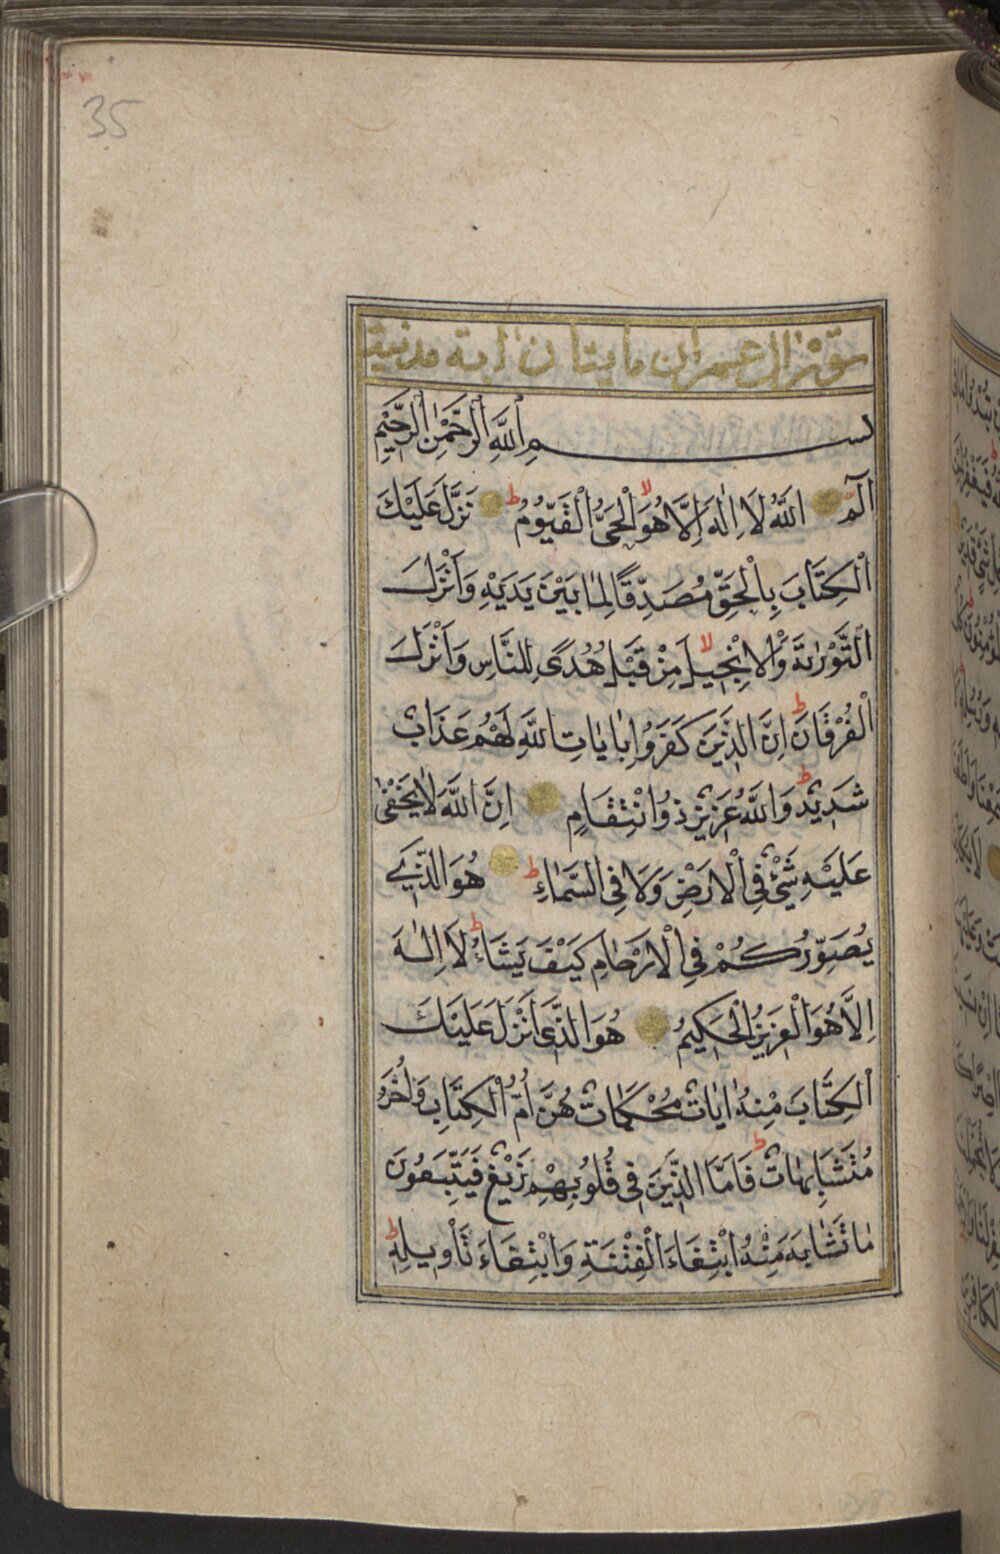 35
سورة ال عمران مايتان اية مدنية
بِسْمِ اللّٰهِ الرَّحْمٰنِ الرَّحِيمِ
الٓمٓ اللّٰهُ لَا اِلٰهَ اِلَّا هُوَ الْحَىُّ الْقَيُّومُ نَزَّلَ عَلَيْكَ
الْكِتَابَ بِالْحَقِّ مُصَدِّقًا لِمَا بَيْنَ يَدَيْهِ وَاَنْزَلَ
التَّوْرٰيةَ وَالْاِنْجِيلَ مِنْ قَبْلُ هُدًى لِلنَّاسِ وَاَنْزَلَ
الْفُرْقَانَ اِنَّ الَّذِينَ كَفَرُوا بِاٰيَاتِ اللّٰهِ لَهُمْ عَذَابٌ
شَدِيدٌ وَاللّٰهُ عَزِيزٌ ذُو انْتِقَامٍ اِنَّ اللّٰهَ لَا يَخْفٰى
عَلَيْهِ شَيْءٌ فِي الْاَرْضِ وَلَا فِي السَّمَاءِ هُوَ الَّذِي
يُصَوِّرُكُمْ فِي الْاَرْحَامِ كَيْفَ يَشَاءُ لَا اِلٰهَ
اِلَّا هُوَ الْعَزِيزُ الْحَكِيمُ هُوَ الَّذِى اَنْزَلَ عَلَيْكَ
الْكِتَابَ مِنْهُ اٰيَاتٌ مُحْكَمَاتٌ هُنَّ اُمُّ الْكِتَابِ وَاُخَرُ
مُتَشَابِهَاتٌ فَاَمَّا الَّذِينَ فِي قُلُوبِهِمْ زَيْغٌ فَيَتَّبِعُونَ
مَا تَشَابَهَ مِنْهُ ابْتِغَاءَ الْفِتْنَةِ وَابْتِغَاءَ تَأْوِيلِهِ